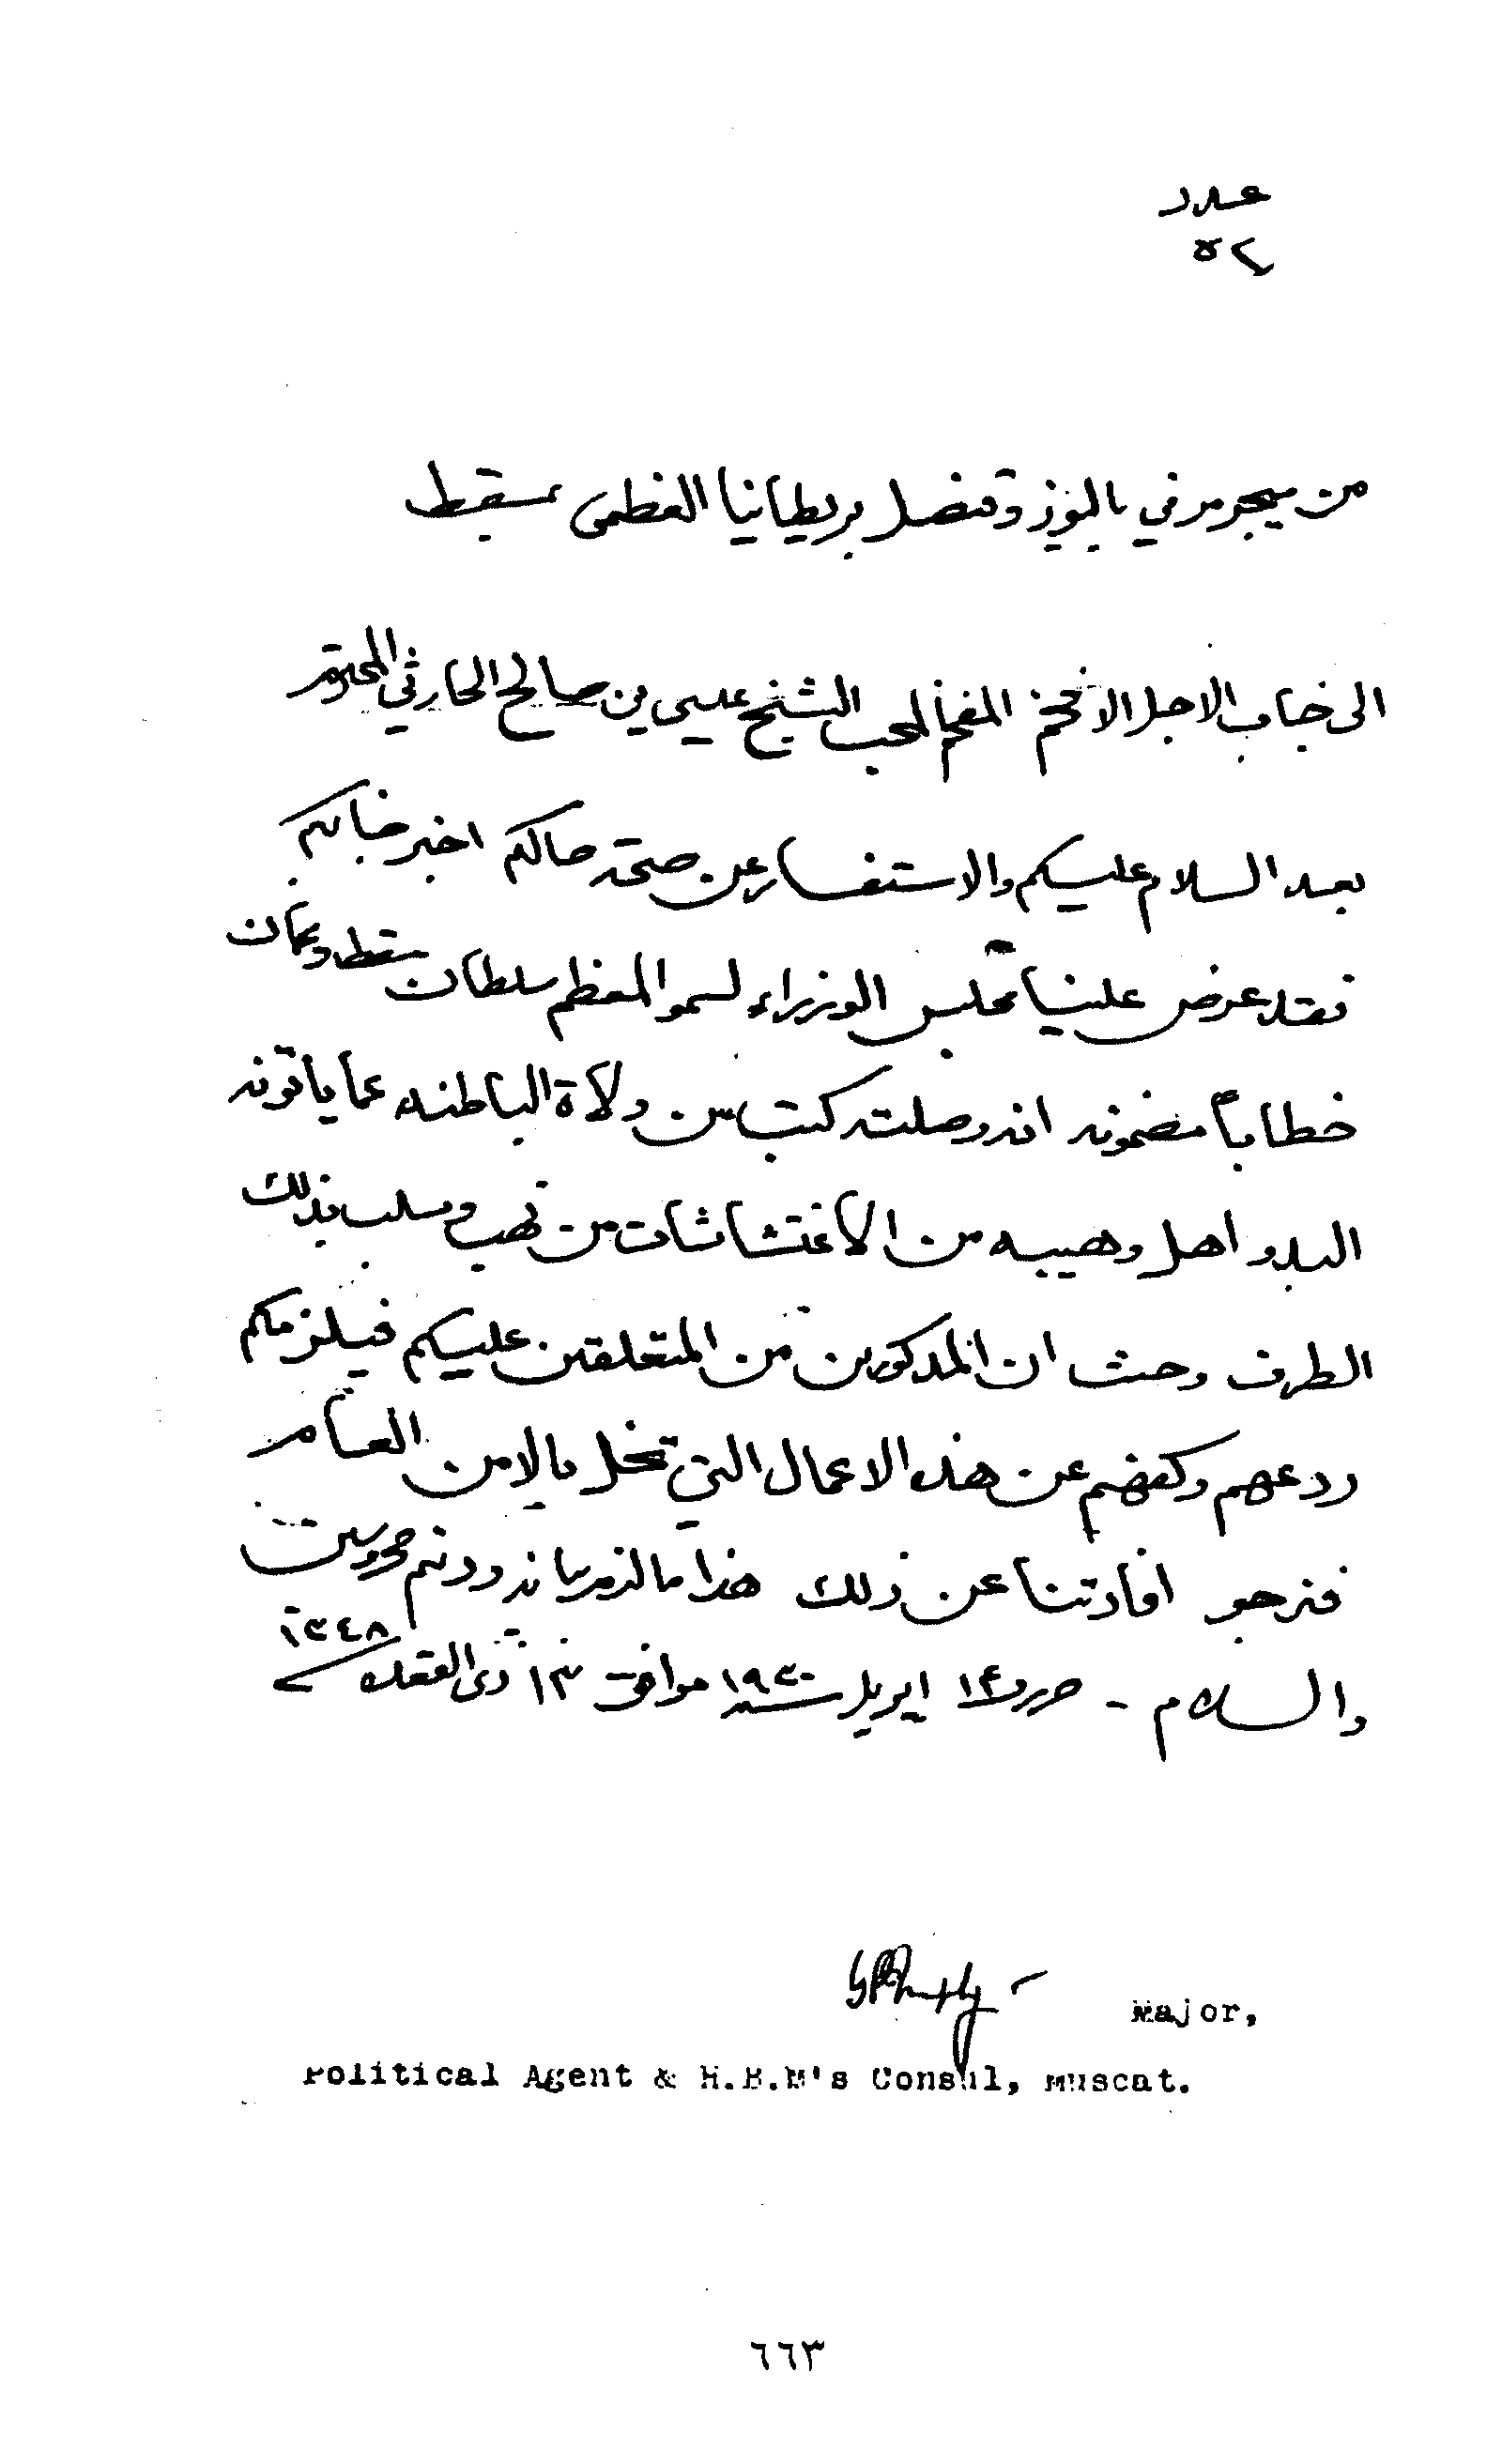 عدد
٥٢
من ميجر مرفي باليوز وقنصل بريطانيا العظمى بمسقط
الى جناب الاجل الافخم المفخم المحب الشيخ عيسى بن صالح الحارثي المحترم
بعد السلام عليكم والاستفسار عن صحة حالكم اخبر جنابكم
فقد عرض علينا مجلس الوزراء لسمو المعظم سلطان مسقط وعمان
خطاباً مضمونه انه وصلته كتب من ولاة الباطنه عما ياتونه
البدو اهل وهيبه من الاغتشاشات من نهب وسلب بذلك
الطرف وحيث ان المذكورين من المتعلقين عليكم فيلزمكم
ردعهم وكفهم عن هذه الاعمال التي تخل بالامن العام
فنرجو افادتنا عن ذلك هذا ما لزم بيانه ودتم محروسين
والسلام - حرر ١٤ ابريل سنه ١٩٣٠ موافق ١٣ ذي القعده ١٣٤٨
Major,
Political Agent & H.B.M's Consul, Muscat.
٦٦٣